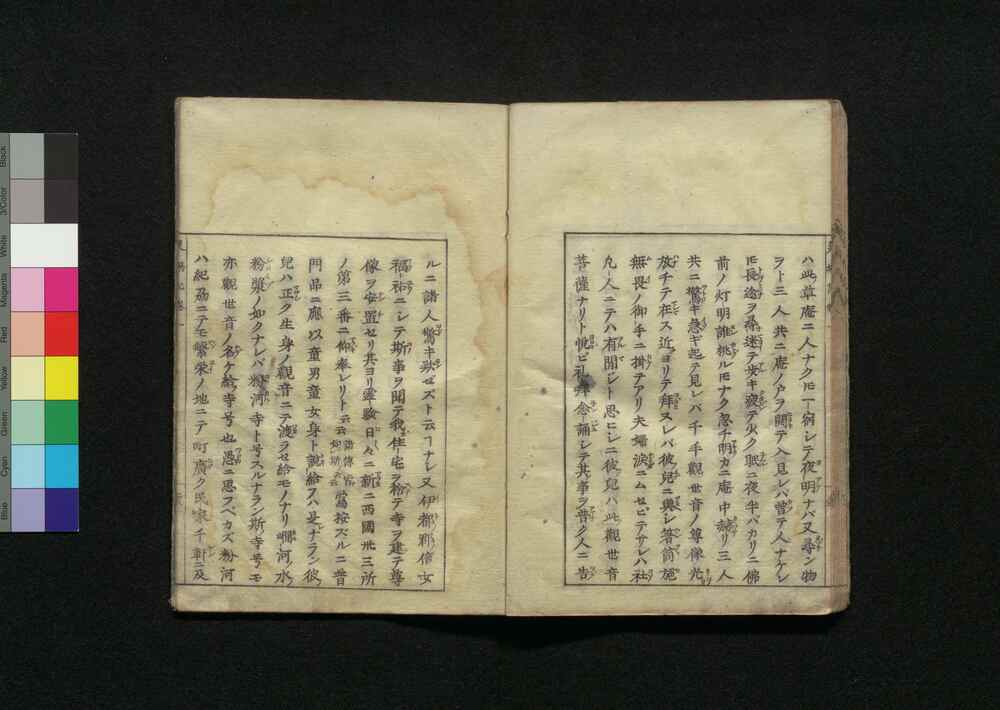 ハ此草庵ニ人ナクㇳモ一宿シテ夜明ナバ又尋ン物
ヲト三人共ニ庵ノ戸ヲ開テ入見レバ曽テ人ナケレ
ㇳモ長途ヲ尋迷テ歩キ疲テ少ク眠ニ夜半バカリニ佛
前ノ灯明誰挑ルㇳモナク忽チ明カニ庵中赫リ三人
共ニ驚キ急ギ起テ見レバ千手觀世音ノ尊像光
放チテ在ス近ヨリテ拜スレバ彼兒ニ與シ箸筒施
無畏ノ御手ニ掛テアリ夫婦涙ニムセビテサレハ社
凡人ニテハ有間シト思ヒシニ彼兒ハ此觀世音
菩薩ナリト悦ビ礼拜念誦シテ其事ヲ普ク人ニ告
ルニ諸人驚キ歎ゼズト云ヿナシ又伊都郡信女
福祐ニシテ斯事ヲ聞テ我住宅ヲ粉テ寺ヲ建テ尊
像ヲ安置セリ其ヨリ霊驗日々ニ新ニ西國卅三所
ノ第三番ニ仰奉レリト云云 當按ズルニ普
門品ニ應以童男童女身ト説給フハ是ナラン彼
兒ハ正ク生身ノ觀音ニテ渡ラセ給モノナリ 河ノ水
粉漿ノ如クナレバ粉河寺ト号スルナラン斯寺号モ
亦觀世音ノ名ケ給ノ寺号也愚ニ思フベカズ粉河
ハ紀刕ニテモ繁栄ノ地ニテ町廣ク民家千軒ニ及